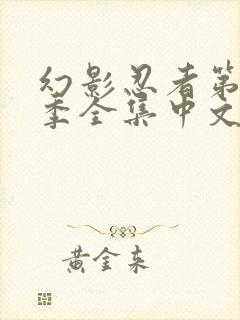 幻影忍者第
季全集中文
黄金来